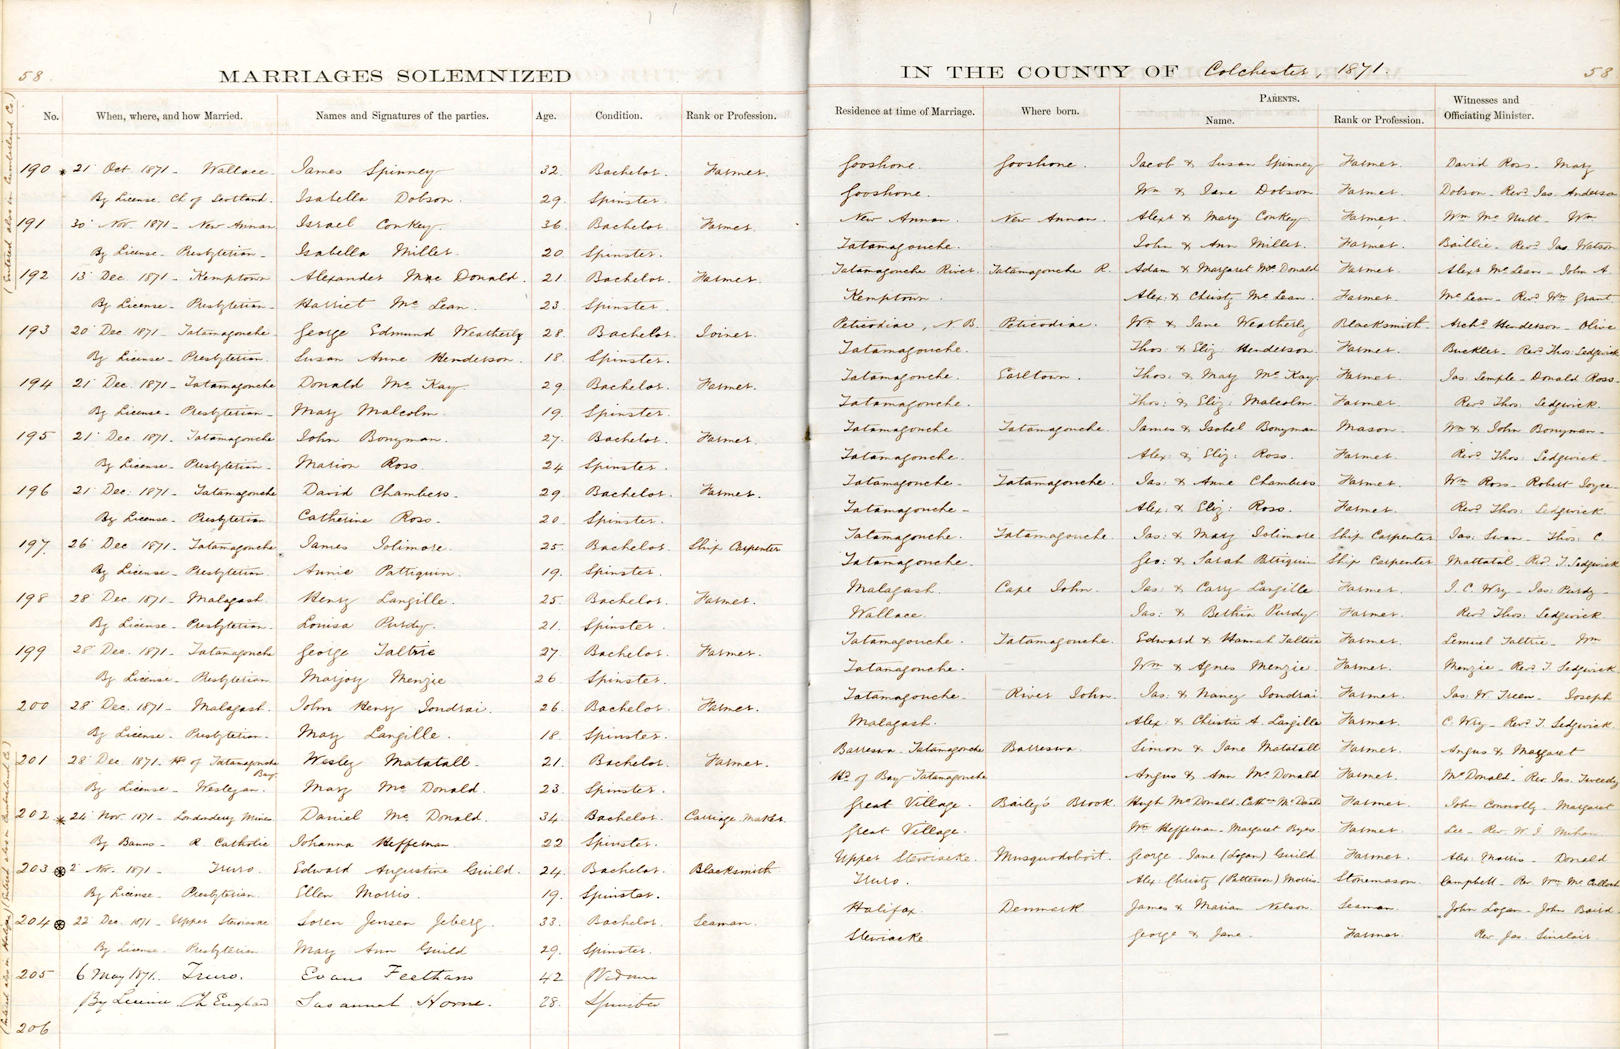 58
MARRIAGES SOLEMNIZED
IN THE COUNTY OF Colchester, 1871.
58
No. When, where, and how Married. Names and Signatures of the parties. Age. Condition. Rank or Profession. Residence at time of Marriage. Where born. PARENTS. Name. Rank or Profession. Witnesses and Officiating Minister.
(Entered also in Cumberland Co)
190 21 Oct 1871 - Wallace. James Spinney 32 Bachelor. Farmer. Gooshone. Gooshone. Jacob & Susan Spinney Farmer. David Ross - Mary
By License Ch of Scotland. Isabella Dobson. 29. Spinster. Gooshone. Wm & Jane Dobson Farmer. Dobson - Revd Jas. Anderson
191 30 Nov. 1871 - New Annan Israel Conkey. 36 Bachelor Farmer. New Annan. New Annan. Alexr & Mary Conkey. Farmer. Wm McNutt - Wm
By License - Presbyterian - Isabella Miller. 20 Spinster. Tatamagouche. John & Ann Miller. Farmer. Baillie - Revd Jas Watson
192 13 Dec. 1871 - Kemptown Alexander Mac Donald. 21 Bachelor Farmer. Tatamagouche River. Tatamagouche R. Adam & Margaret McDonald Farmer. Alexr McLean - John A.
By License - Presbyterian - Harriet Mc Lean. 23 Spinster. Kemptown. Alex: & Christy McLean. Farmer. McLean - Revd Wm Grant.
193 20 Dec 1871 - Tatamagouche George Edmund Weatherly 28. Bachelor. Joiner. Peticodiac, N.B. Peticodiac. Wm & Jane Weatherly Blacksmith Archd Henderson - Olive
By License - Presbyterian. Susan Anne Henderson. 18 Spinster. Tatamagouche. Thos: & Eliz Henderson. Farmer. Buckler - Revd Thos: Sedgwick
194 21 Dec. 1871 - Tatamagouche Donald Mc Kay. 29. Bachelor. Farmer. Tatamagouche. Earltown. Thos: & Mary McKay. Farmer Jas: Semple - Donald Ross.
By License - Presbyterian - Mary Malcolm. 19. Spinster. Tatamagouche. Thos: & Eliz: Malcolm. Farmer Revd Thos: Sedgwick.
195 21 Dec. 1871. Tatamagouche John Bonyman. 27. Bachelor. Farmer. Tatamagouche Tatamagouche. James & Isobel Bonyman Mason. Wm & John Bonyman -
By License - Presbyterian - Marion Ross. 24 Spinster. Tatamagouche. Alex: & Eliz: Ross. Farmer. Revd Thos: Sedgwick -
196 21 Dec: 1871 - Tatamagouche David Chambers. 29. Bachelor. Farmer. Tatamagouche - Tatamagouche. Jas: & Anne Chambers Farmer. Wm Ross - Robert Joyce -
By License - Presbyterian Catherine Ross. 20. Spinster. Tatamagouche - Alex: & Eliz: Ross. Farmer. Revd Thos: Sedgwick.
197. 26 Dec 1871. Tatamagouche James Jolimore. 25. Bachelor. Ship Carpenter Tatamagouche. Tatamagouche. Jas: & Mary Jolimore Ship Carpenter Jas: Swan - Thos: C.
By License - Presbyterian. Annie Pattiquin. 19. Spinster. Tatamagouche. Geo: & Sarah Pattiquin Ship Carpenter Mattatal - Revd T. Sedgwick
198 28 Dec. 1871 - Malagash. Henry Langille. 25. Bachelor. Farmer. Malagash. Cape John. Jas: & Cary Langille Farmer. J. C. Wry - Jas: Purdy -
By License - Presbyterian. Louisa Purdy. 21. Spinster. Wallace. Jas: & Bethia Purdy Farmer. Revd Thos: Sedgwick
199 28 Dec. 1871 - Tatamagouche George Taltrie 27. Bachelor. Farmer. Tatamagouche. Tatamagouche. Edward & Hannah Taltrie Farmer. Lemuel Taltrie - Wm
By License - Presbyterian Marjory Menzie. 26 Spinster. Tatamagouche. Wm & Agnes Menzie. Farmer. Menzie - Revd T. Sedgwick
200 28 Dec. 1871 - Malagash. John Henry Jondrai. 26 Bachelor. Farmer. Tatamagouche. River John. Jas: & Nancy Jondrai Farmer. Jas: W Treen - Joseph
By License - Presbyterian. Mary Langille. 18. Spinster. Malagash. Alex: & Christie A. Langille Farmer. C. Wry - Revd T. Sedgwick.
(Entered also in Cumberland Co)
201 28 Dec. 1871. Hd of Tatamagouche Bay Wesley Matatall. 21. Bachelor. Farmer. Tatamagouche Simon & Jane Matatall Farmer. Angus & Margaret
By License - Wesleyan. Mary Mc Donald. 23. Spinster. Hd of Bay Tatamagouche Angus & Ann McDonald Farmer. McDonald - Rev. Jas. Tweedy
202 24 Nov. 1871 - Londonderry Mines Daniel Mc Donald. 34 Bachelor. Carriage Maker. Great Village. Bailey's Brook. Hugh McDonald. McDonald Farmer. John Connolly - Margaret
By Banns - R Catholic Johanna Heffernan. 22 Spinster. Great Village. Wm Heffernan - Margaret Farmer. Lee - Rev. W. J.
203 2 Nov. 1871 - Truro. Edward Augustine Guild. 24. Bachelor. Blacksmith Upper Stewiacke. Musquodoboit. George - Jane (Logan) Guild Farmer. Alex: Morris - Donald
By License - Presbyterian. Ellen Morris. 19. Spinster. Truro. Alex: Christy (Patterson) Morris. Stonemason. Campbell - Rev. Wm McCulloch
(Entered also in Halifax)
204 22 Dec. 1871 - Upper Stewiacke Soren Jensen Jeberg. 33. Bachelor Seaman. Halifax. Denmark James & Marian Nelson. Seaman John Logan - John Baird
By License. Presbyterian Mary Ann Guild 29. Spinster. Stewiacke George & Jane. Farmer. Rev Jas. Sinclair.
205 6 May 1871. Truro. Evans Feethans 42
By License Ch England Susannah Horne. 28. Spinster
206